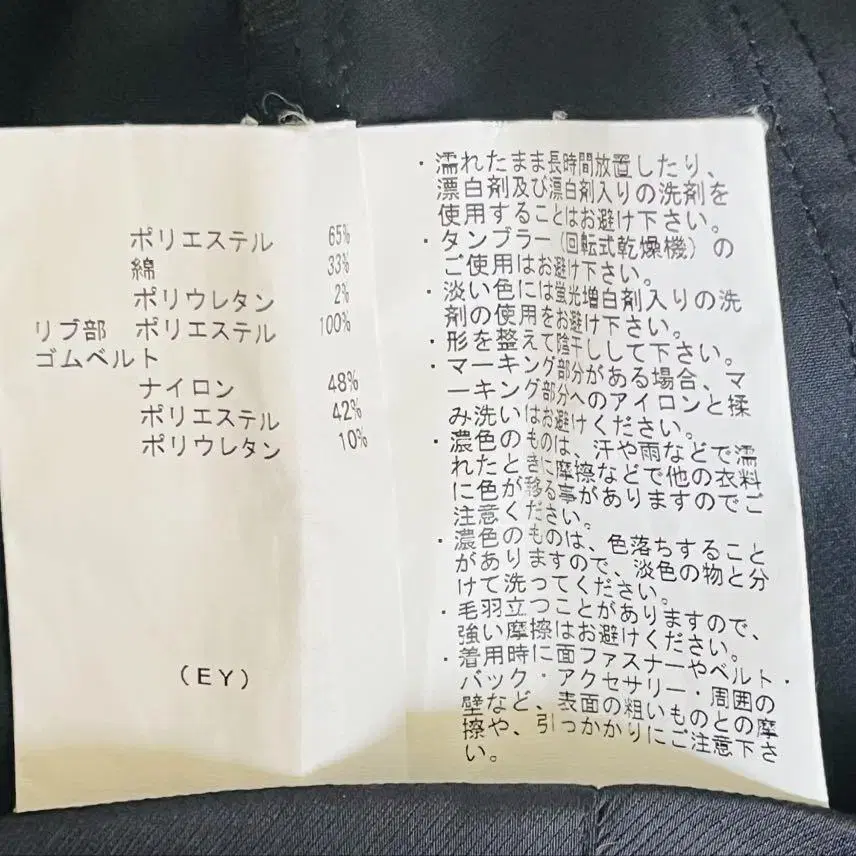 ポリエステル 65%
綿 33%
ポリウレタン 2%
リブ部 ポリエステル 100%
ゴムベルト
ナイロン 48%
ポリエステル 42%
ポリウレタン 10%
(EY)
・濡れたまま長時間放置したり、
漂白剤及び漂白剤入りの洗剤を
使用することはお避け下さい。
・タンブラー(回転式乾燥機)の
ご使用はお避け下さい。
・淡い色には蛍光増白剤入りの洗
剤の使用をお避け下さい。
・形を整えて陰干しして下さい。
・マーキング部分がある場合、マ
ーキング部分へのアイロンと揉
み洗いはお避けください。
・濃色のものは、汗や雨などで濡
れたときに摩擦などで他の衣料
に色が移る事がありますのでご
注意ください。
・濃色のものは、色落ちすること
がありますので、淡色の物と分
けて洗ってください。
・毛羽立つことがありますので、
強い摩擦はお避けください。
・着用時に面ファスナーやベルト・
バック・アクセサリー・周囲の
壁など、表面の粗いものとの摩
擦や、引っかかりにご注意下さ
い。